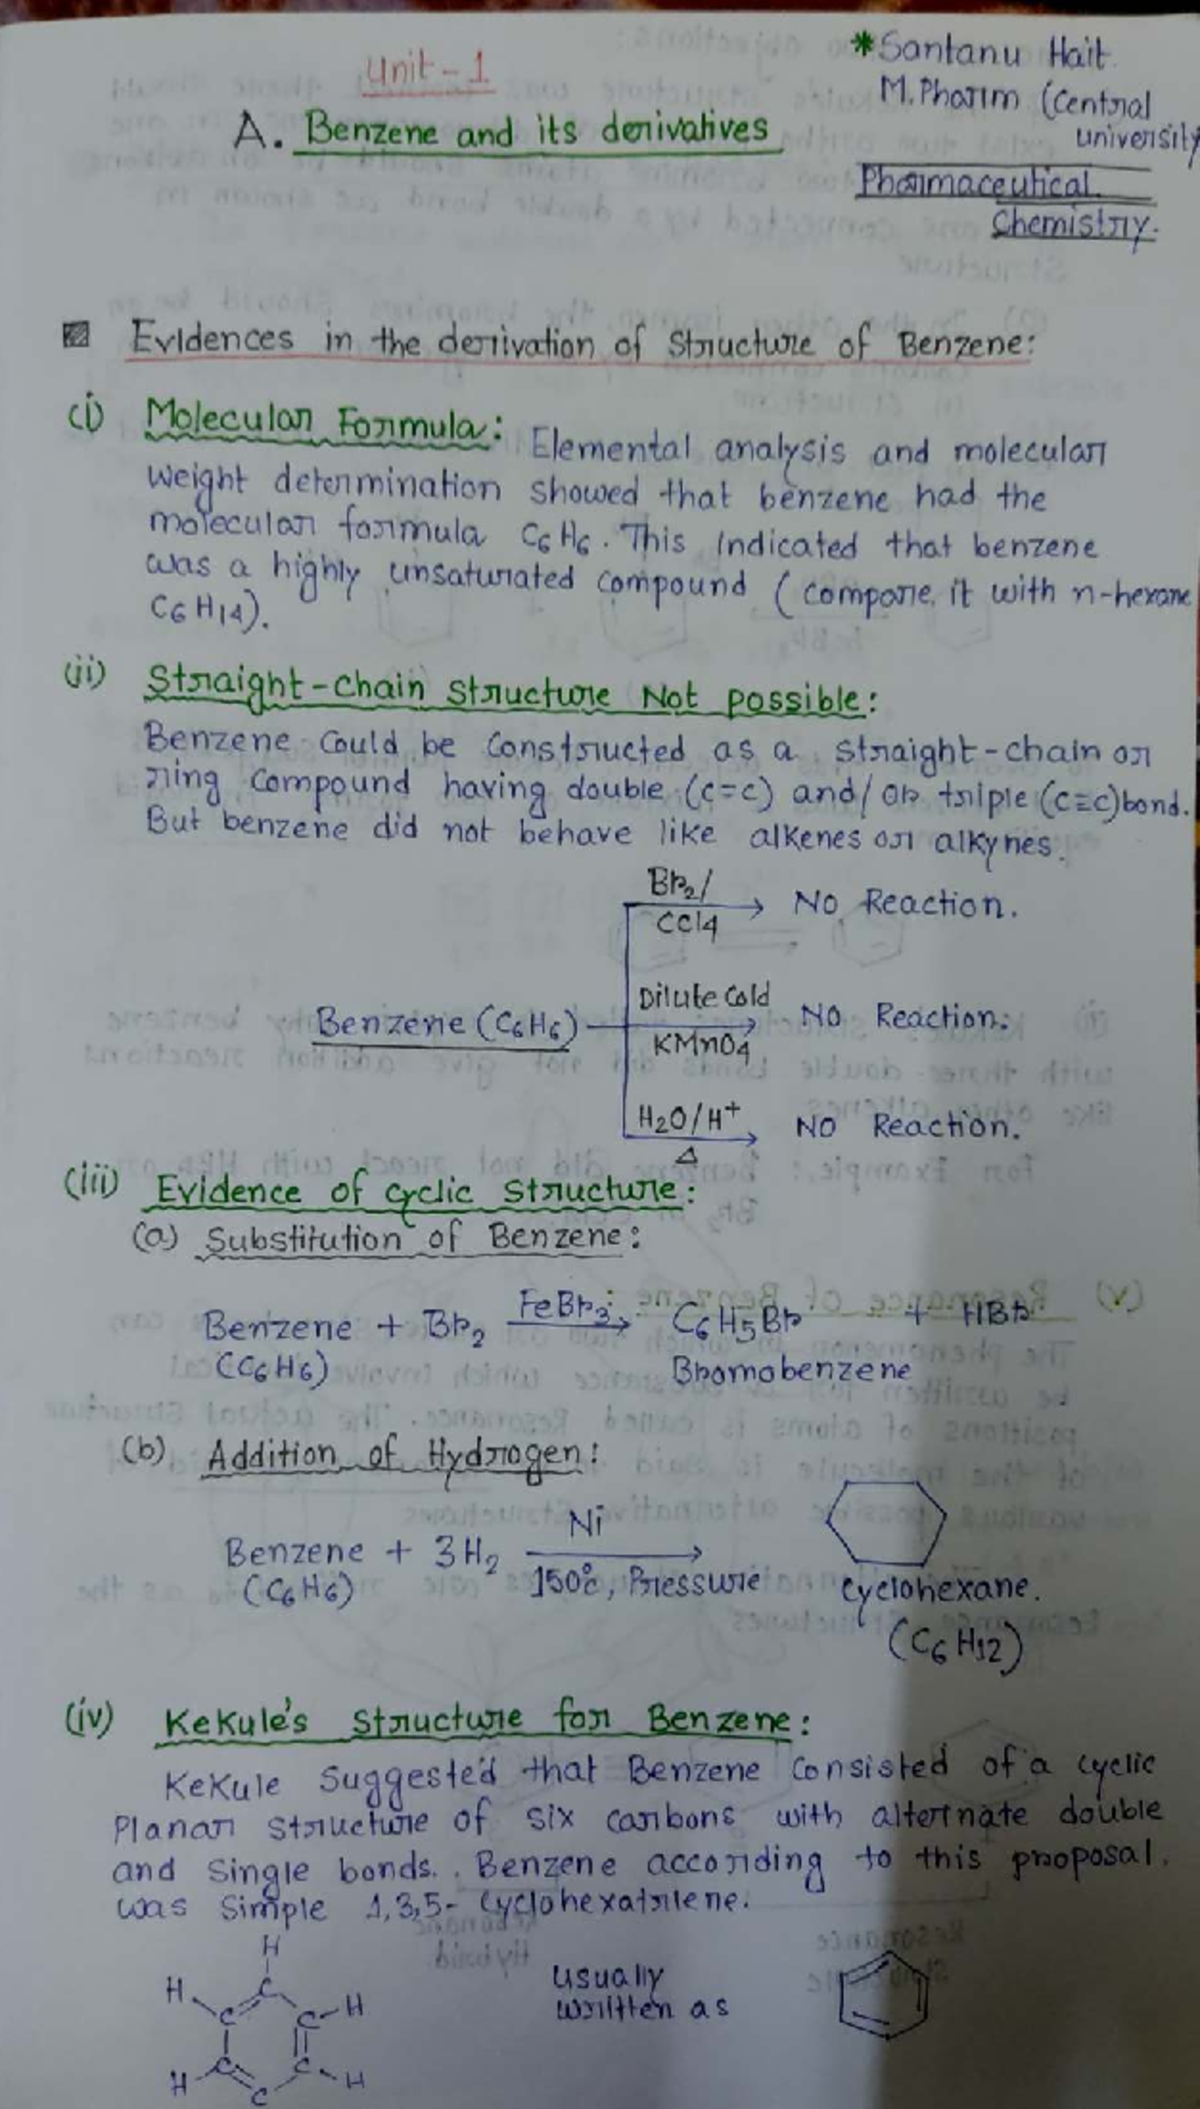 Unit-1
*Santanu Hait.
M.Pharm (Central
university
A. Benzene and its derivatives
Pharmaceutical
Chemistry.
Evidences in the derivation of Structure of Benzene:
(i) Molecular Formula: Elemental analysis and molecular
weight determination showed that benzene had the
molecular formula C6H6. This Indicated that benzene
was a highly unsaturated compound (compare it with n-hexane
C6H14).
(ii) Straight-chain structure Not possible:
Benzene Could be Constructed as a straight-chain or
ring Compound having double (c=c) and/or triple (c≡c) bond.
But benzene did not behave like alkenes or alkynes.
Br2/
CCl4
No Reaction.
Benzene (C6H6)
Dilute Cold
KMnO4
NO Reaction.
H2O/H+
Δ
NO Reaction.
(iii) Evidence of cyclic structure:
(a) Substitution of Benzene:
Benzene + Br2 FeBr3 → C6H5Br + HBr
(C6H6) Bromobenzene
(b) Addition of Hydrogen:
Benzene + 3H2 Ni →
(C6H6) 150°c, Pressure cyclohexane.
(C6H12)
(iv) Kekule's Structure for Benzene:
Kekule Suggested that Benzene Consisted of a cyclic
Planar structure of six carbons with alternate double
and Single bonds. Benzene according to this proposal.
was Simple 1,3,5- Cyclohexatriene.
H
H C H
C C
usually
written as
C C
H C H